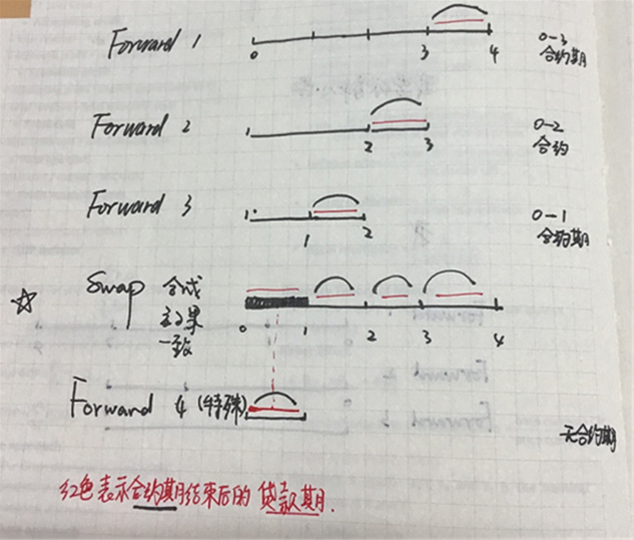 Forward 1
0 3 4
0-3
合约期
Forward 2
2 3
0-2
合约
Forward 3
1 2
0-1
合约期
☆ Swap 合成
效果
一致
0 1 2 3 4
Forward 4 (特殊)
无合约期
红色表示合约期结束后的贷款期.